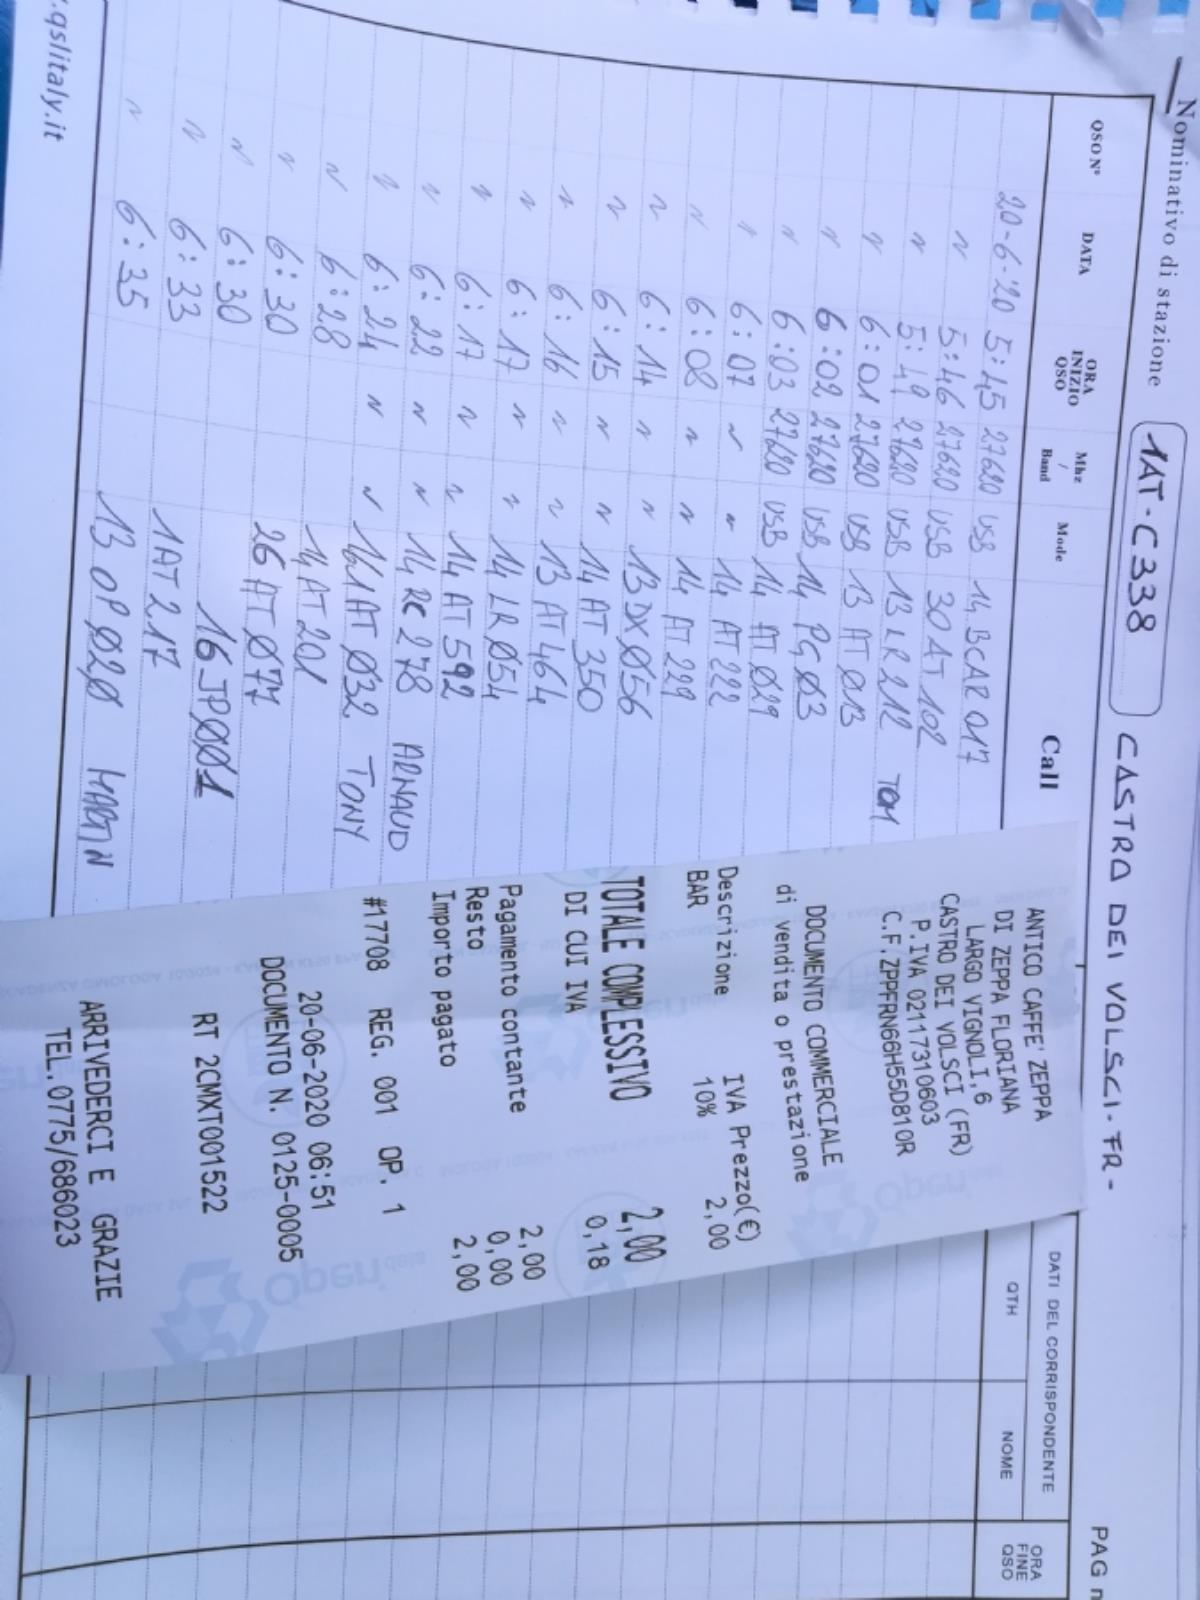 Nominativo di stazione 1AT-C338 CASTRO DEI VOLSCI-FR-
PAG n
QSO N° DATA ORA INIZIO QSO Mhz / Band Mode Call
DATI DEL CORRISPONDENTE
QTH NOME ORA FINE QSO
20-6-20 5:45 27620 USB 14 BCAR 017
" 5:46 27620 USB 30 AT 102
" 5:49 27620 USB 13 LR 212 TOM
" 6:01 27620 USB 13 AT Ø13
" 6:02 27620 USB 14 PG Ø3
" 6:03 27620 USB 14 AT Ø29
" 6:07 " " 14 AT 222
" 6:08 " " 14 AT 229
" 6:14 " " 13 DX Ø56
" 6:15 " " 14 AT 350
" 6:16 " " 13 AT 464
" 6:17 " " 14 LR Ø54
" 6:17 " " 14 AT 592
" 6:22 " " 14 RC 278 ARNAUD
" 6:24 " " 161 AT Ø32 TONY
" 6:28 14 AT 201
" 6:30 26 AT Ø77
" 6:30 16 JP ØØ1
" 6:33 1AT 217
" 6:35 13 OP Ø2Ø MARTIN
.qslitaly.it
ANTICO CAFFE' ZEPPA
DI ZEPPA FLORIANA
LARGO VIGNOLI,6
CASTRO DEI VOLSCI (FR)
P.IVA 02117310603
C.F.ZPPFRN66H55D810R
DOCUMENTO COMMERCIALE
di vendita o prestazione
Descrizione IVA Prezzo(€)
BAR 10% 2,00
TOTALE COMPLESSIVO 2,00
DI CUI IVA 0,18
Pagamento contante 2,00
Resto 0,00
Importo pagato 2,00
#17708 REG. 001 OP. 1
20-06-2020 06:51
DOCUMENTO N. 0125-0005
RT 2CMXT001522
ARRIVEDERCI E GRAZIE
TEL.0775/686023